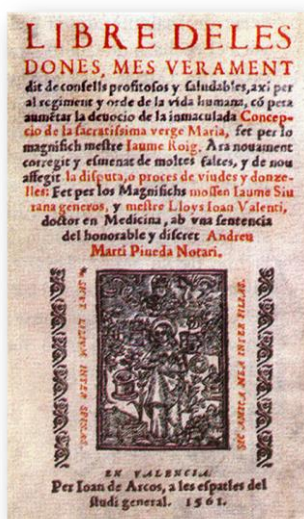 LIBRE DELES
DONES, MES VERAMENT
dit de consells profitosos y saludables, axi per
al regiment y orde de la vida humana, cō pera
aumētar la deuocio de la inmaculada Concep-
cio de la sacratissima verge Maria, fet per lo
magnifich mestre Jaume Roig. Ara nouament
corregit y esmenat de moltes faltes, y de nou
afegit la disputa, o proces de viudes y donze-
lles: Fet per los Magnifichs mossen Iaume Siu
rana generos, y mestre Lloys Ioan Valenti,
doctor en Medicina, ab vna sentencia
del honorable y discret Andreu
Marti Pineda Notari.
SICVT LILIVM INTER SPINAS
SIC AMICA MEA INTER FILIAS.
EN VALENCIA.
Per Ioan de Arcos, a les espatles del
studi general. 1561.